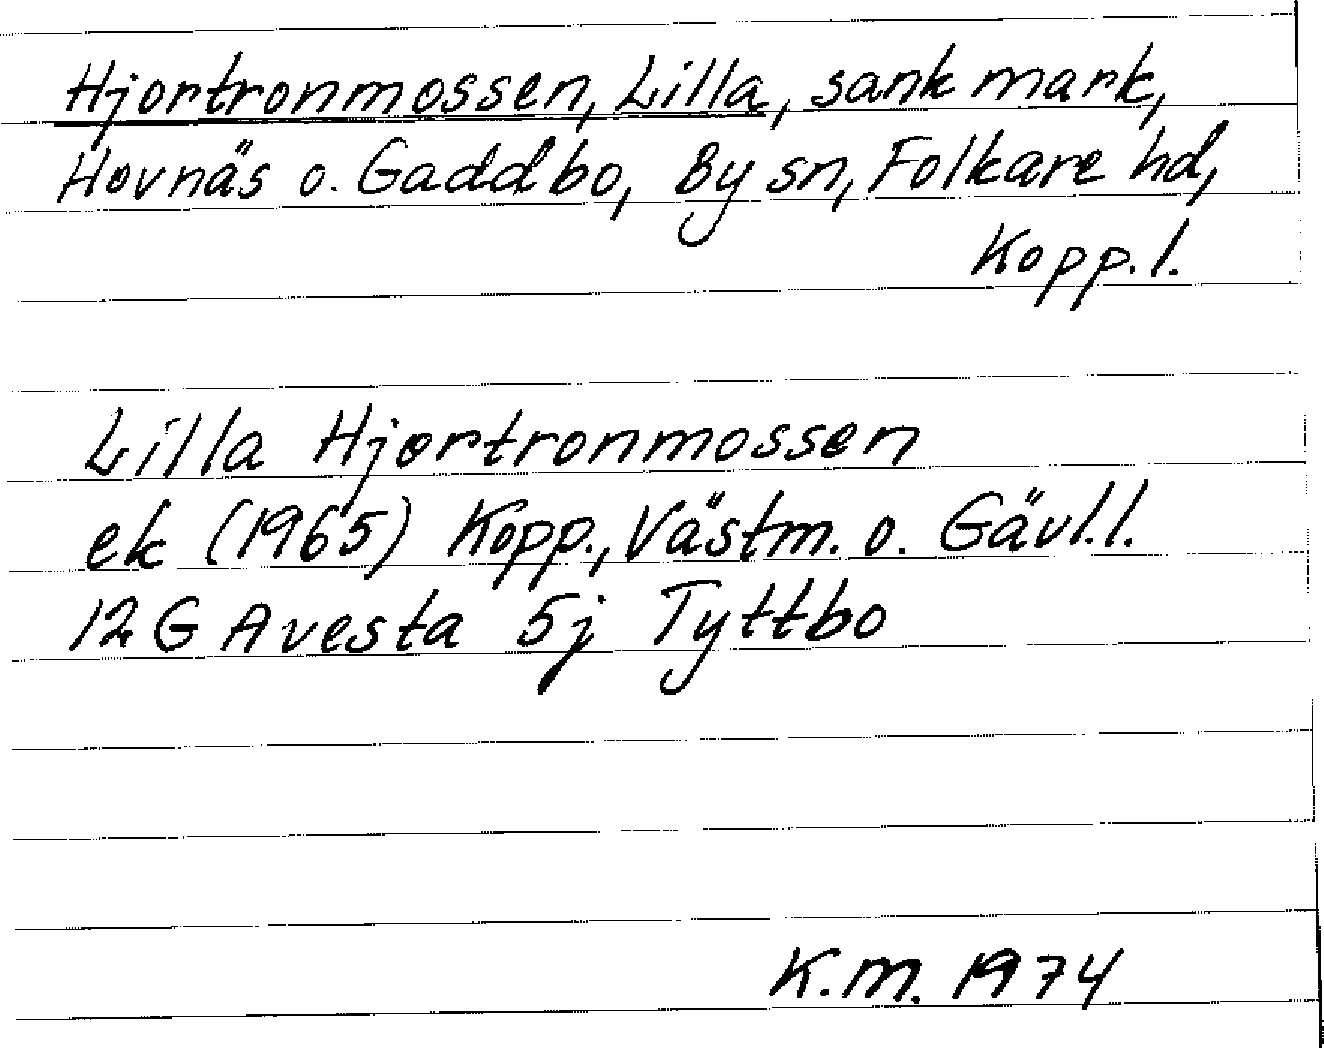 Hjortronmossen, Lilla, sank mark,
Hovnäs o. Gaddbo, By sn, Folkare hd,
Kopp. l.
Lilla Hjortronmossen
ek (1965) Kopp., Västm. o. Gävl. l.
12 G Avesta 5j Tyttbo
K.M. 1974